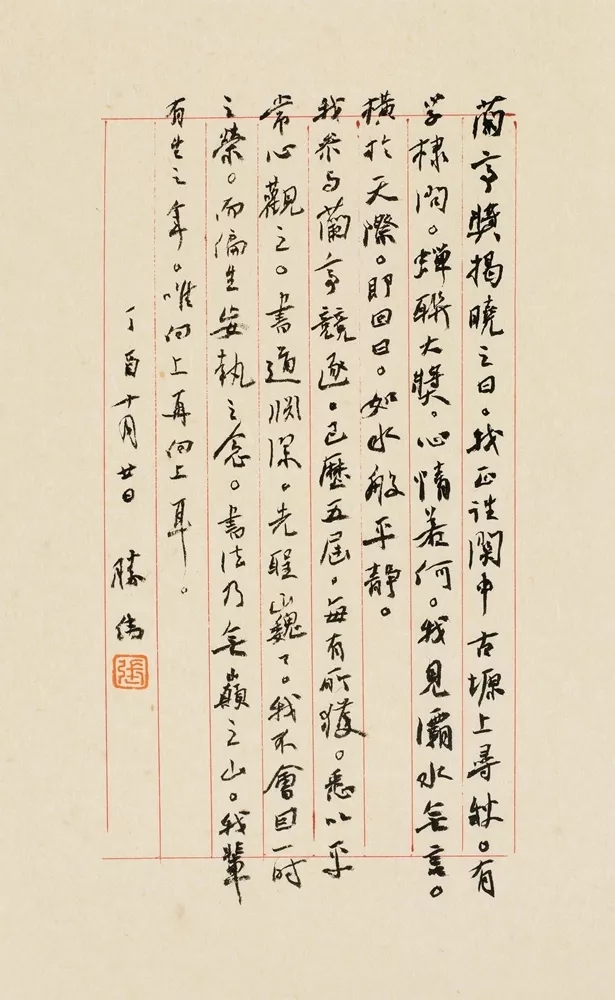 蘭亭獎揭曉之日。我正往關中古塬上尋秋。有
学棣问。蟬聯大獎。心情若何。我見灞水無言。
橫於天際。即回曰。如水般平靜。
我参与蘭亭競逐。已歷五屆。每有所獲。悉以平
常心觀之。書道淵深。先聖巍〻。我不會因一时
之榮。而偏生妄執之念。書法乃無巔之山。我輩
有生之年。唯向上再向上耳。
丁酉十月廿日 勝偉
張